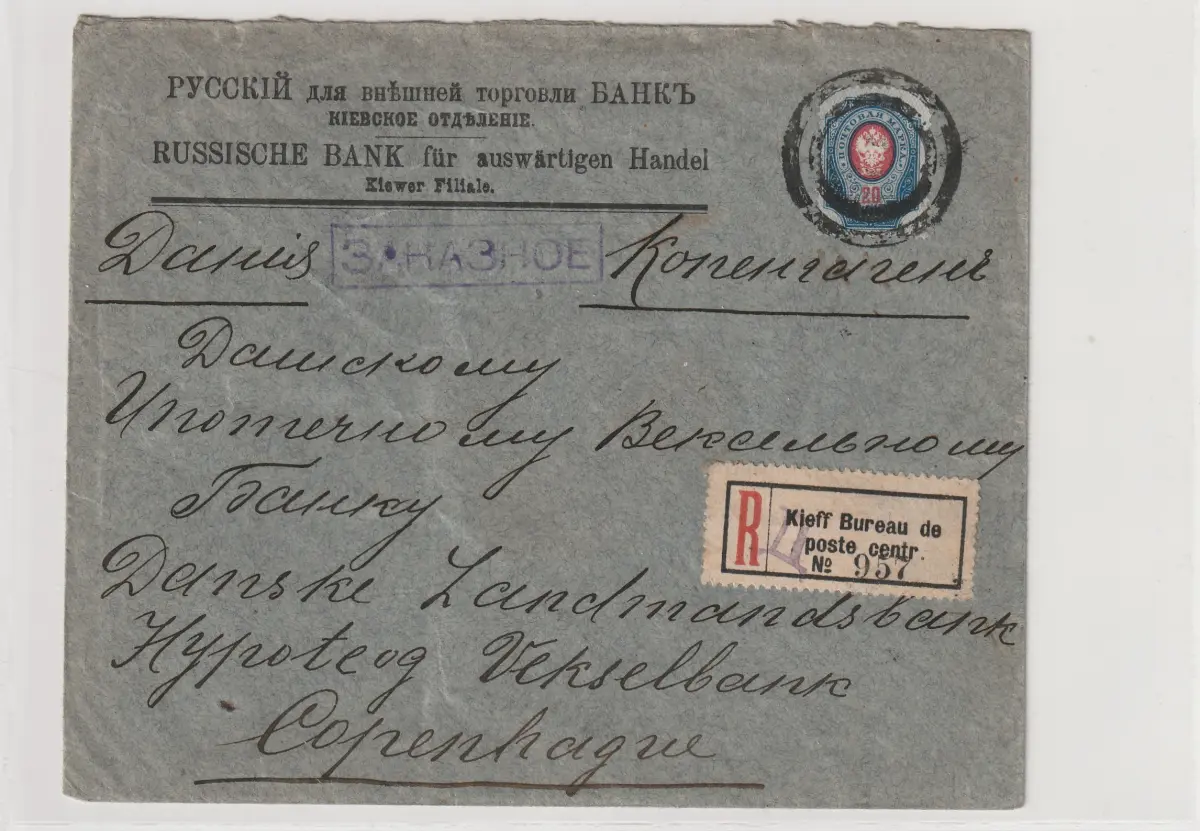 РУССКІЙ для внѣшней торговли БАНКЪ
КІЕВСКОЕ ОТДѢЛЕНІЕ.
RUSSISCHE BANK für auswärtigen Handel
Kiewer Filiale.
ПОЧТОВАЯ МАРКА
20
Данія ЗАКАЗНОЕ Копенгагенъ
Датскому
Ипотечному Вексельному
Банку
R
Kieff Bureau de
poste centr.
№ 957
Danske Landmandsbank
Hypoteog Vekselbank
Copenhague